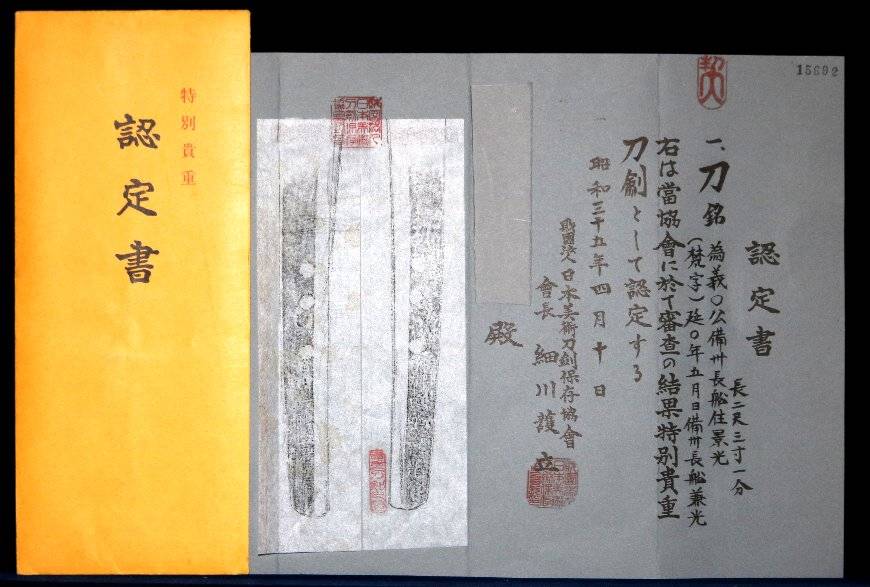 特別貴重
認定書
15892
認定書
一、刀 銘 為義〇公備州長船住景光
(梵字)延〇年五月日備州長船兼光
長二尺三寸一分
右は當協會に於て審査の結果特別貴重
刀劍として認定する
昭和三十五年四月十日
財團法人日本美術刀劍保存協會
會長 細川護立
殿